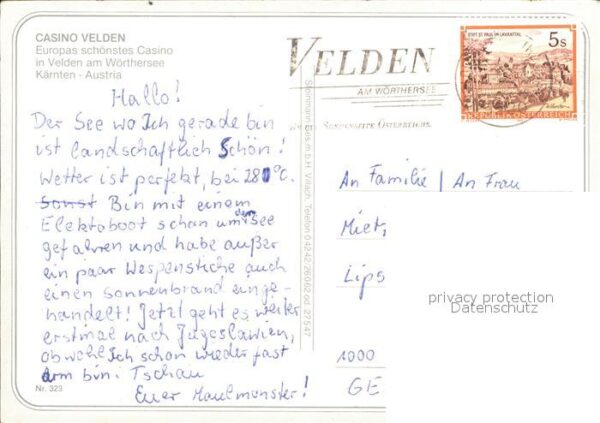 CASINO VELDEN
Europas schönstes Casino
in Velden am Wörthersee
Kärnten - Austria
Hallo!
Der See wo Ich gerade bin
ist landschaftlich Schön!
Wetter ist perfekt, bei 28°C.
Sonst Bin mit einem
Elektoboot schon um den See
gefahren und habe außer
ein paar Wespenstiche auch
einen Sonnenbrand einge-
handelt! Jetzt geht es weiter
erstmal nach Jugoslawien,
obwohl Ich schon wieder fast
arm bin! Tschau
Euer Maulmonster!
Nr. 323
VELDEN
AM WÖRTHERSEE
SONNENSEITE ÖSTERREICHS
STIFT ST. PAUL IM LAVANTTAL
5s
REPUBLIK ÖSTERREICH
An Familie / An Frau
Miet,
Lips
1000
GE
privacy protection
Datenschutz